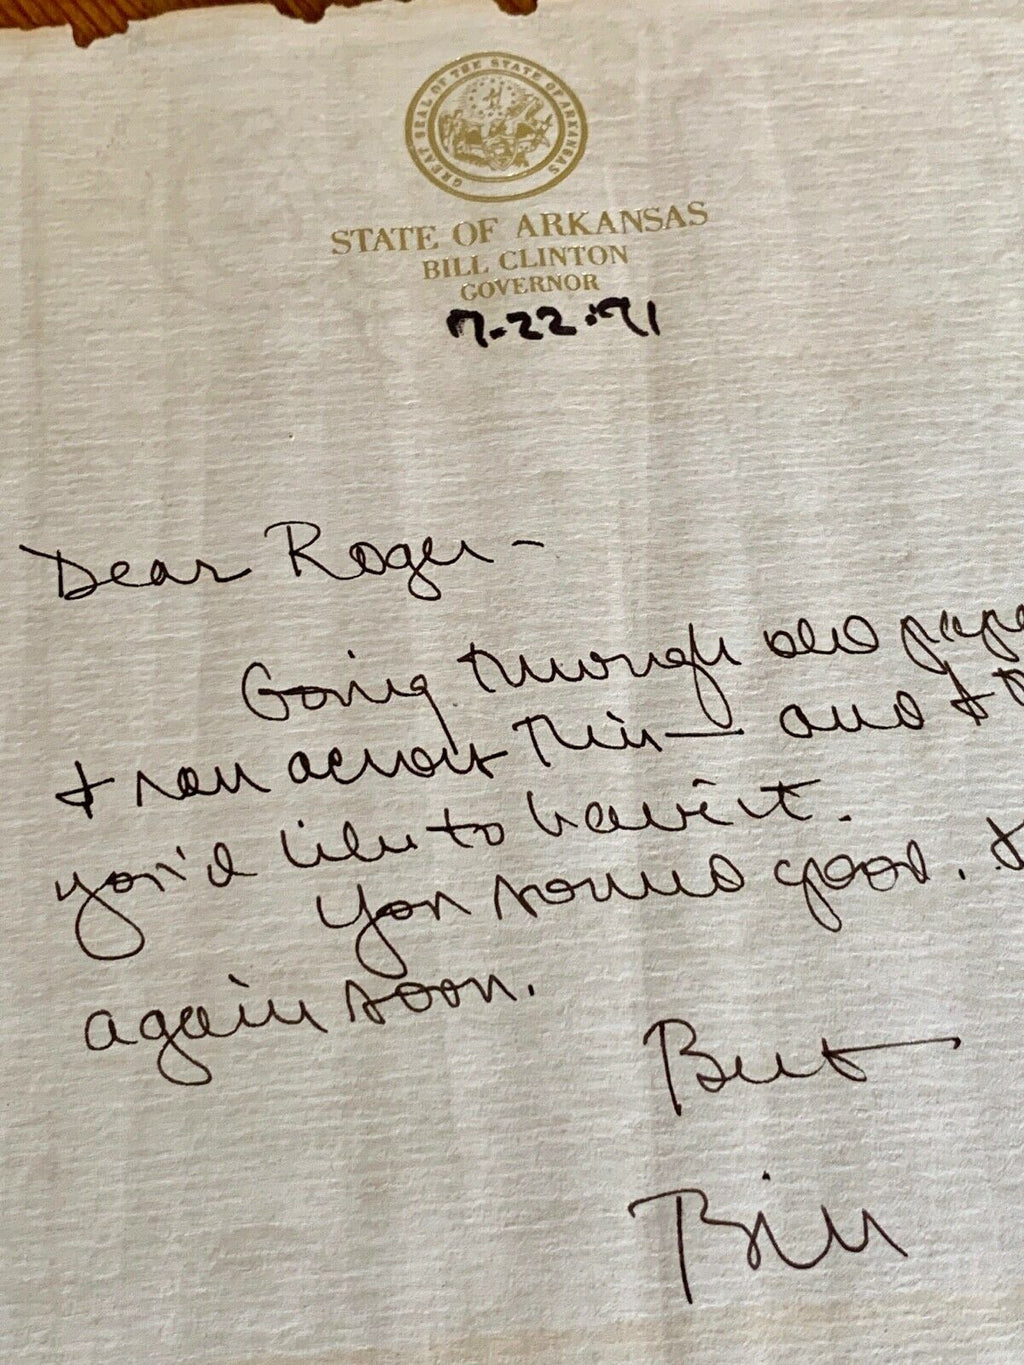 GREAT SEAL OF THE STATE OF ARKANSAS
STATE OF ARKANSAS
BILL CLINTON
GOVERNOR
7-22-91
Dear Roger -
Going through old pape
I ran across this — and I t
you'd like to have it.
You sound good. I
again soon.
Best
Bill